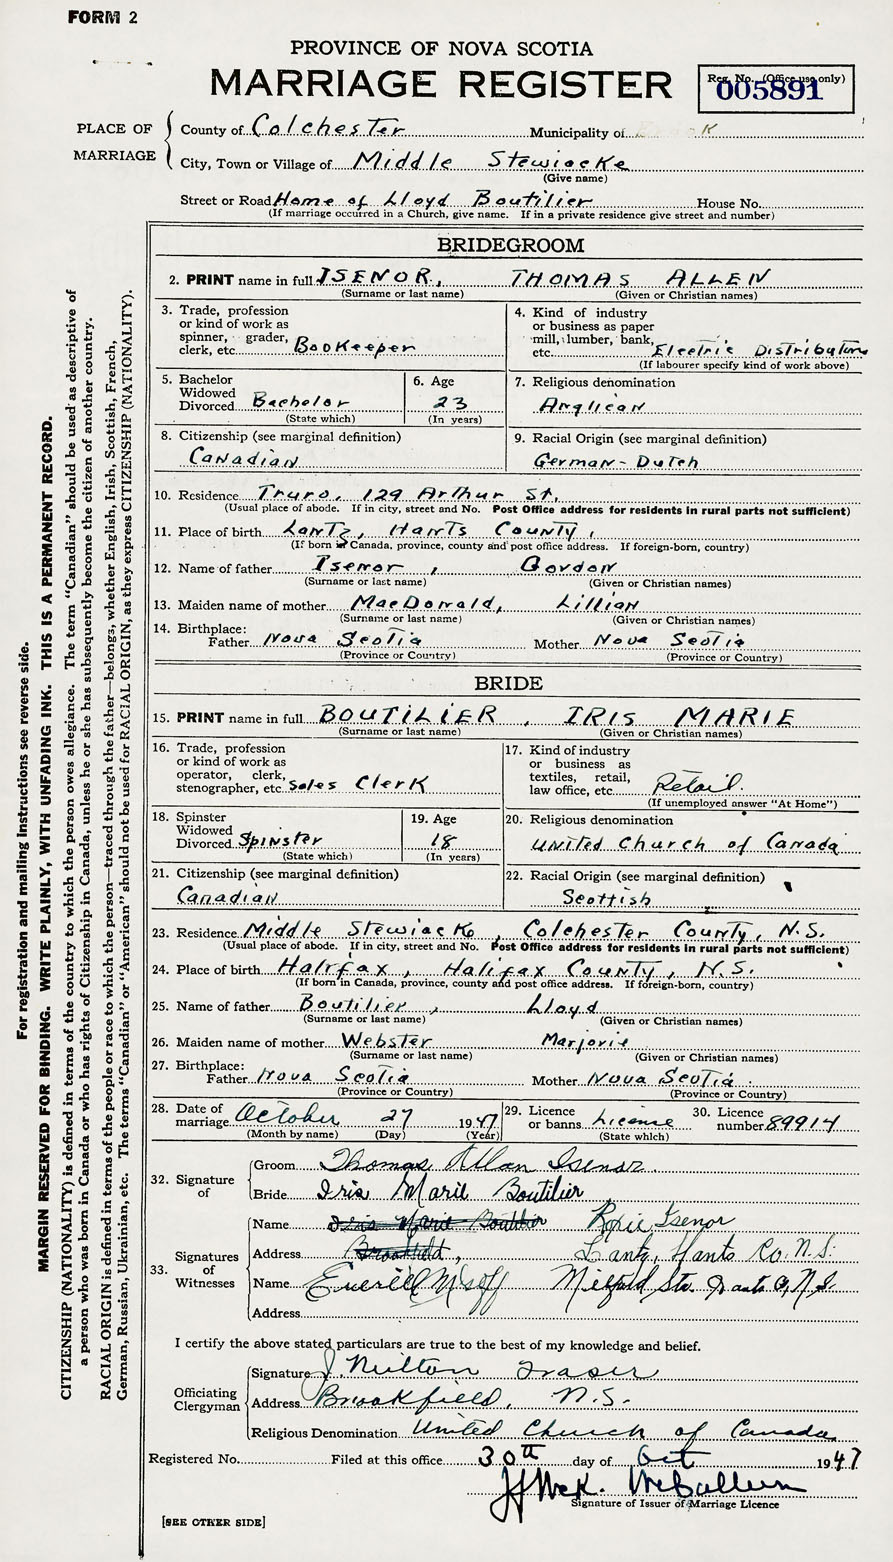 FORM 2
PROVINCE OF NOVA SCOTIA
MARRIAGE REGISTER
Reg. No. (Office use only)
005891
PLACE OF MARRIAGE
County of Colchester Municipality of
City, Town or Village of Middle Stewiacke
(Give name)
Street or Road Home of Lloyd Boutilier House No.
(If marriage occurred in a Church, give name. If in a private residence give street and number)
BRIDEGROOM
2. PRINT name in full ISENOR, THOMAS ALLEN
(Surname or last name) (Given or Christian names)
3. Trade, profession or kind of work as spinner, grader, clerk, etc. Bookeeper
4. Kind of industry or business as paper mill, lumber, bank, etc. Electric Distributors
(If labourer specify kind of work above)
5. Bachelor Widowed Divorced Bachelor
(State which)
6. Age 23
(In years)
7. Religious denomination
Anglican
8. Citizenship (see marginal definition)
Canadian
9. Racial Origin (see marginal definition)
German-Dutch
10. Residence Truro, 129 Arthur St.
(Usual place of abode. If in city, street and No. Post Office address for residents in rural parts not sufficient)
11. Place of birth Lantz, Hants County,
(If born in Canada, province, county and post office address. If foreign-born, country)
12. Name of father Isenor, Gordon
(Surname or last name) (Given or Christian names)
13. Maiden name of mother MacDonald, Lillian
(Surname or last name) (Given or Christian names)
14. Birthplace:
Father Nova Scotia Mother Nova Scotia
(Province or Country) (Province or Country)
BRIDE
15. PRINT name in full BOUTILIER, IRIS MARIE
(Surname or last name) (Given or Christian names)
16. Trade, profession or kind of work as operator, clerk, stenographer, etc. Sales Clerk
17. Kind of industry or business as textiles, retail, law office, etc. Retail.
(If unemployed answer "At Home")
18. Spinster Widowed Divorced Spinster
(State which)
19. Age 18
(In years)
20. Religious denomination
United Church of Canada
21. Citizenship (see marginal definition)
Canadian
22. Racial Origin (see marginal definition)
Scottish
23. Residence Middle Stewiacke, Colchester County, N.S.
(Usual place of abode. If in city, street and No. Post Office address for residents in rural parts not sufficient)
24. Place of birth Halifax, Halifax County, N.S.
(If born in Canada, province, county and post office address. If foreign-born, country)
25. Name of father Boutilier, Lloyd
(Surname or last name) (Given or Christian names)
26. Maiden name of mother Webster Marjorie
(Surname or last name) (Given or Christian names)
27. Birthplace:
Father Nova Scotia Mother Nova Scotia.
(Province or Country) (Province or Country)
28. Date of marriage October 27 1947
(Month by name) (Day) (Year)
29. Licence or banns License
(State which)
30. Licence number 89914
32. Signature of
Groom Thomas Allan Isenor.
Bride Iris Marie Boutilier
33. Signatures of Witnesses
Name Iris Marie Boutilier Roxie Isenor
Address Brookfield, Lantz, Hants Co. N.S.
Name Milford Sta. Hants Co, N.S.
Address
I certify the above stated particulars are true to the best of my knowledge and belief.
Officiating Clergyman
Signature J. Milton Fraser
Address Brookfield, N.S.
Religious Denomination United Church of Canada
Registered No. Filed at this office 30th day of Oct 1947
Signature of Issuer of Marriage Licence
[SEE OTHER SIDE]
For registration and mailing instructions see reverse side.
MARGIN RESERVED FOR BINDING. WRITE PLAINLY, WITH UNFADING INK. THIS IS A PERMANENT RECORD.
CITIZENSHIP (NATIONALITY) is defined in terms of the country to which the person owes allegiance. The term "Canadian" should be used as descriptive of
a person who was born in Canada or who has rights of Citizenship in Canada, unless he or she has subsequently become the citizen of another country.
RACIAL ORIGIN is defined in terms of the people or race to which the person—traced through the father—belongs, whether English, Irish, Scottish, French,
German, Russian, Ukrainian, etc. The terms "Canadian" or "American" should not be used for RACIAL ORIGIN, as they express CITIZENSHIP (NATIONALITY).